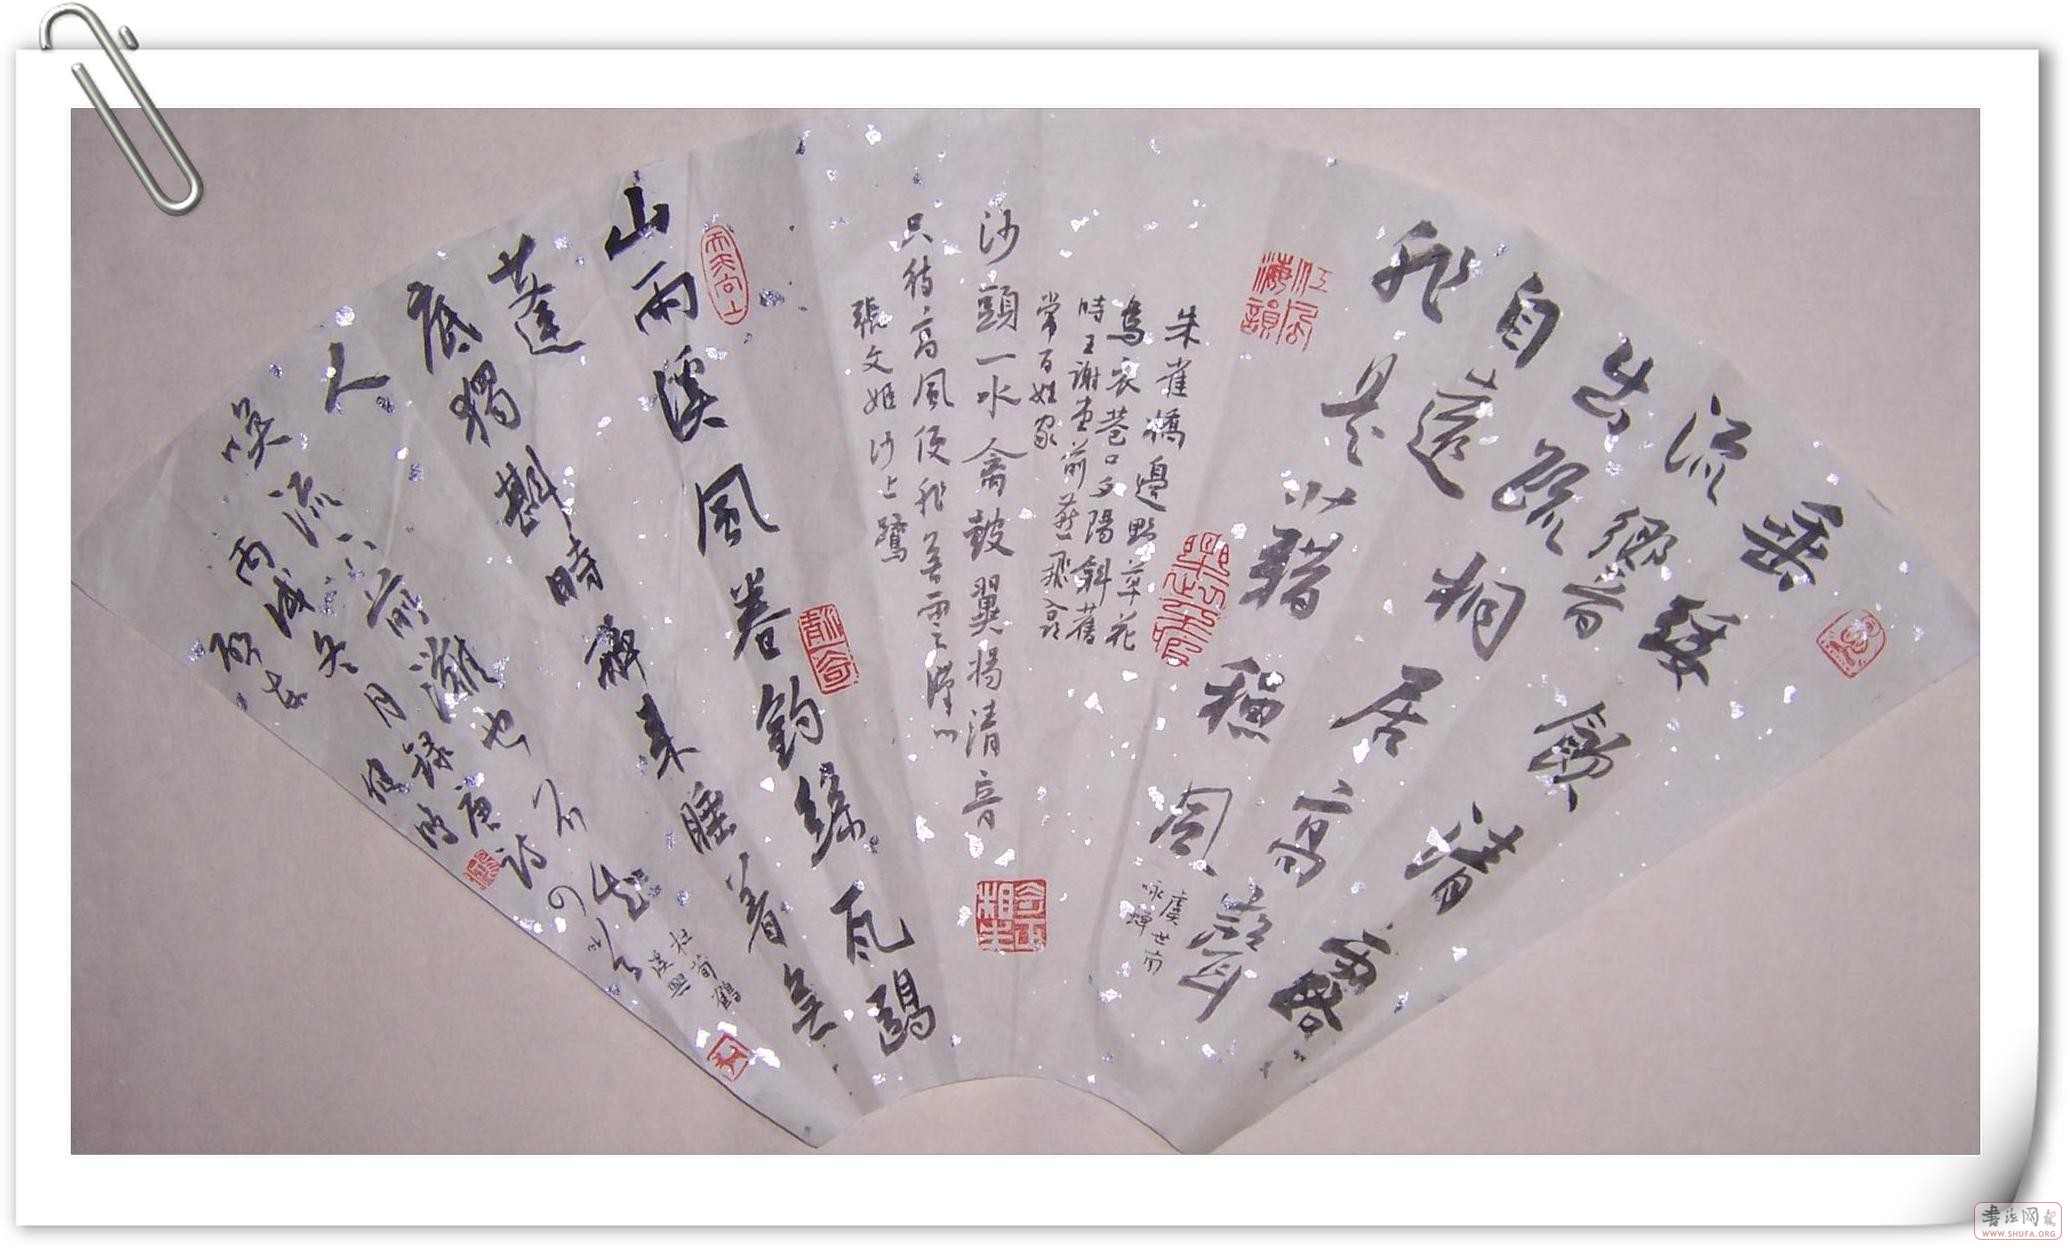 垂緌飲清露
流響
出疏桐居高聲
自遠
非是藉穐風
虞世南
咏蟬
朱雀橋邊野草花
烏衣巷口夕陽斜舊
時王謝堂前燕飛入尋
常百姓家
沙頭一水禽鼓翼揚清音
只待高風便非無雲漢心
張文姬沙上鷺
山雨溪風卷釣絲瓦甌
蓬
底獨斟時醉來睡着無
人
喚流下前灘也不知
杜荀鶴
溪興
丙戌冬月録唐詩四首
江風海韻
天天向上
书法网
WWW.SHUFA.ORG